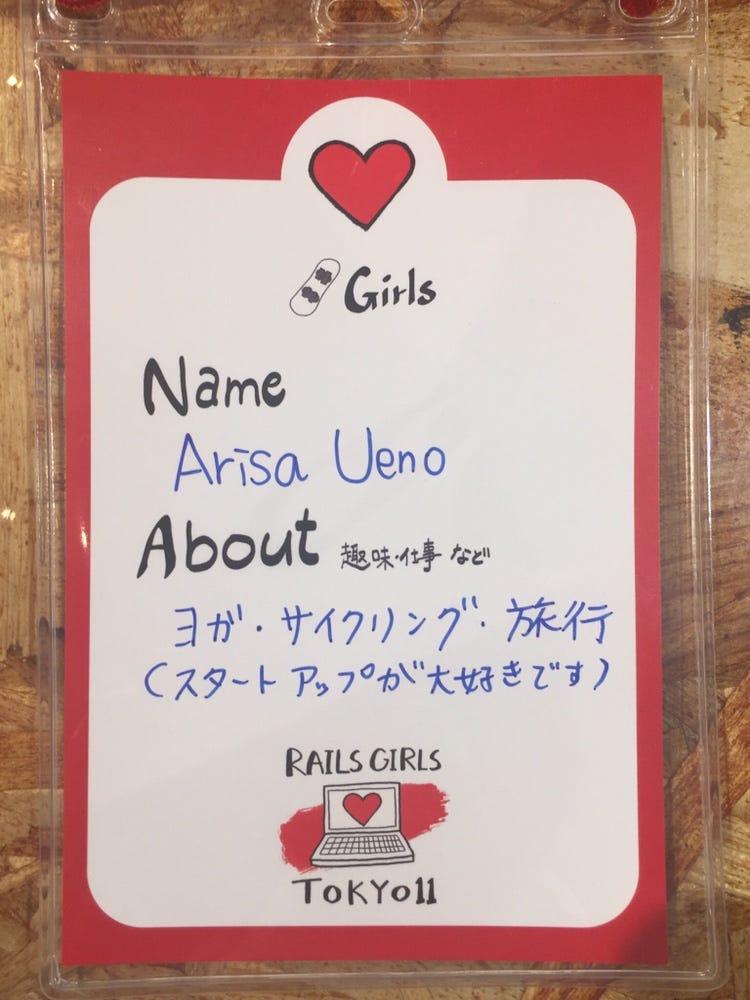 Girls
Name
Arisa Ueno
About 趣味・仕事 など
ヨガ・サイクリング・旅行
(スタートアップが大好きです)
RAILS GIRLS
TOKYO11